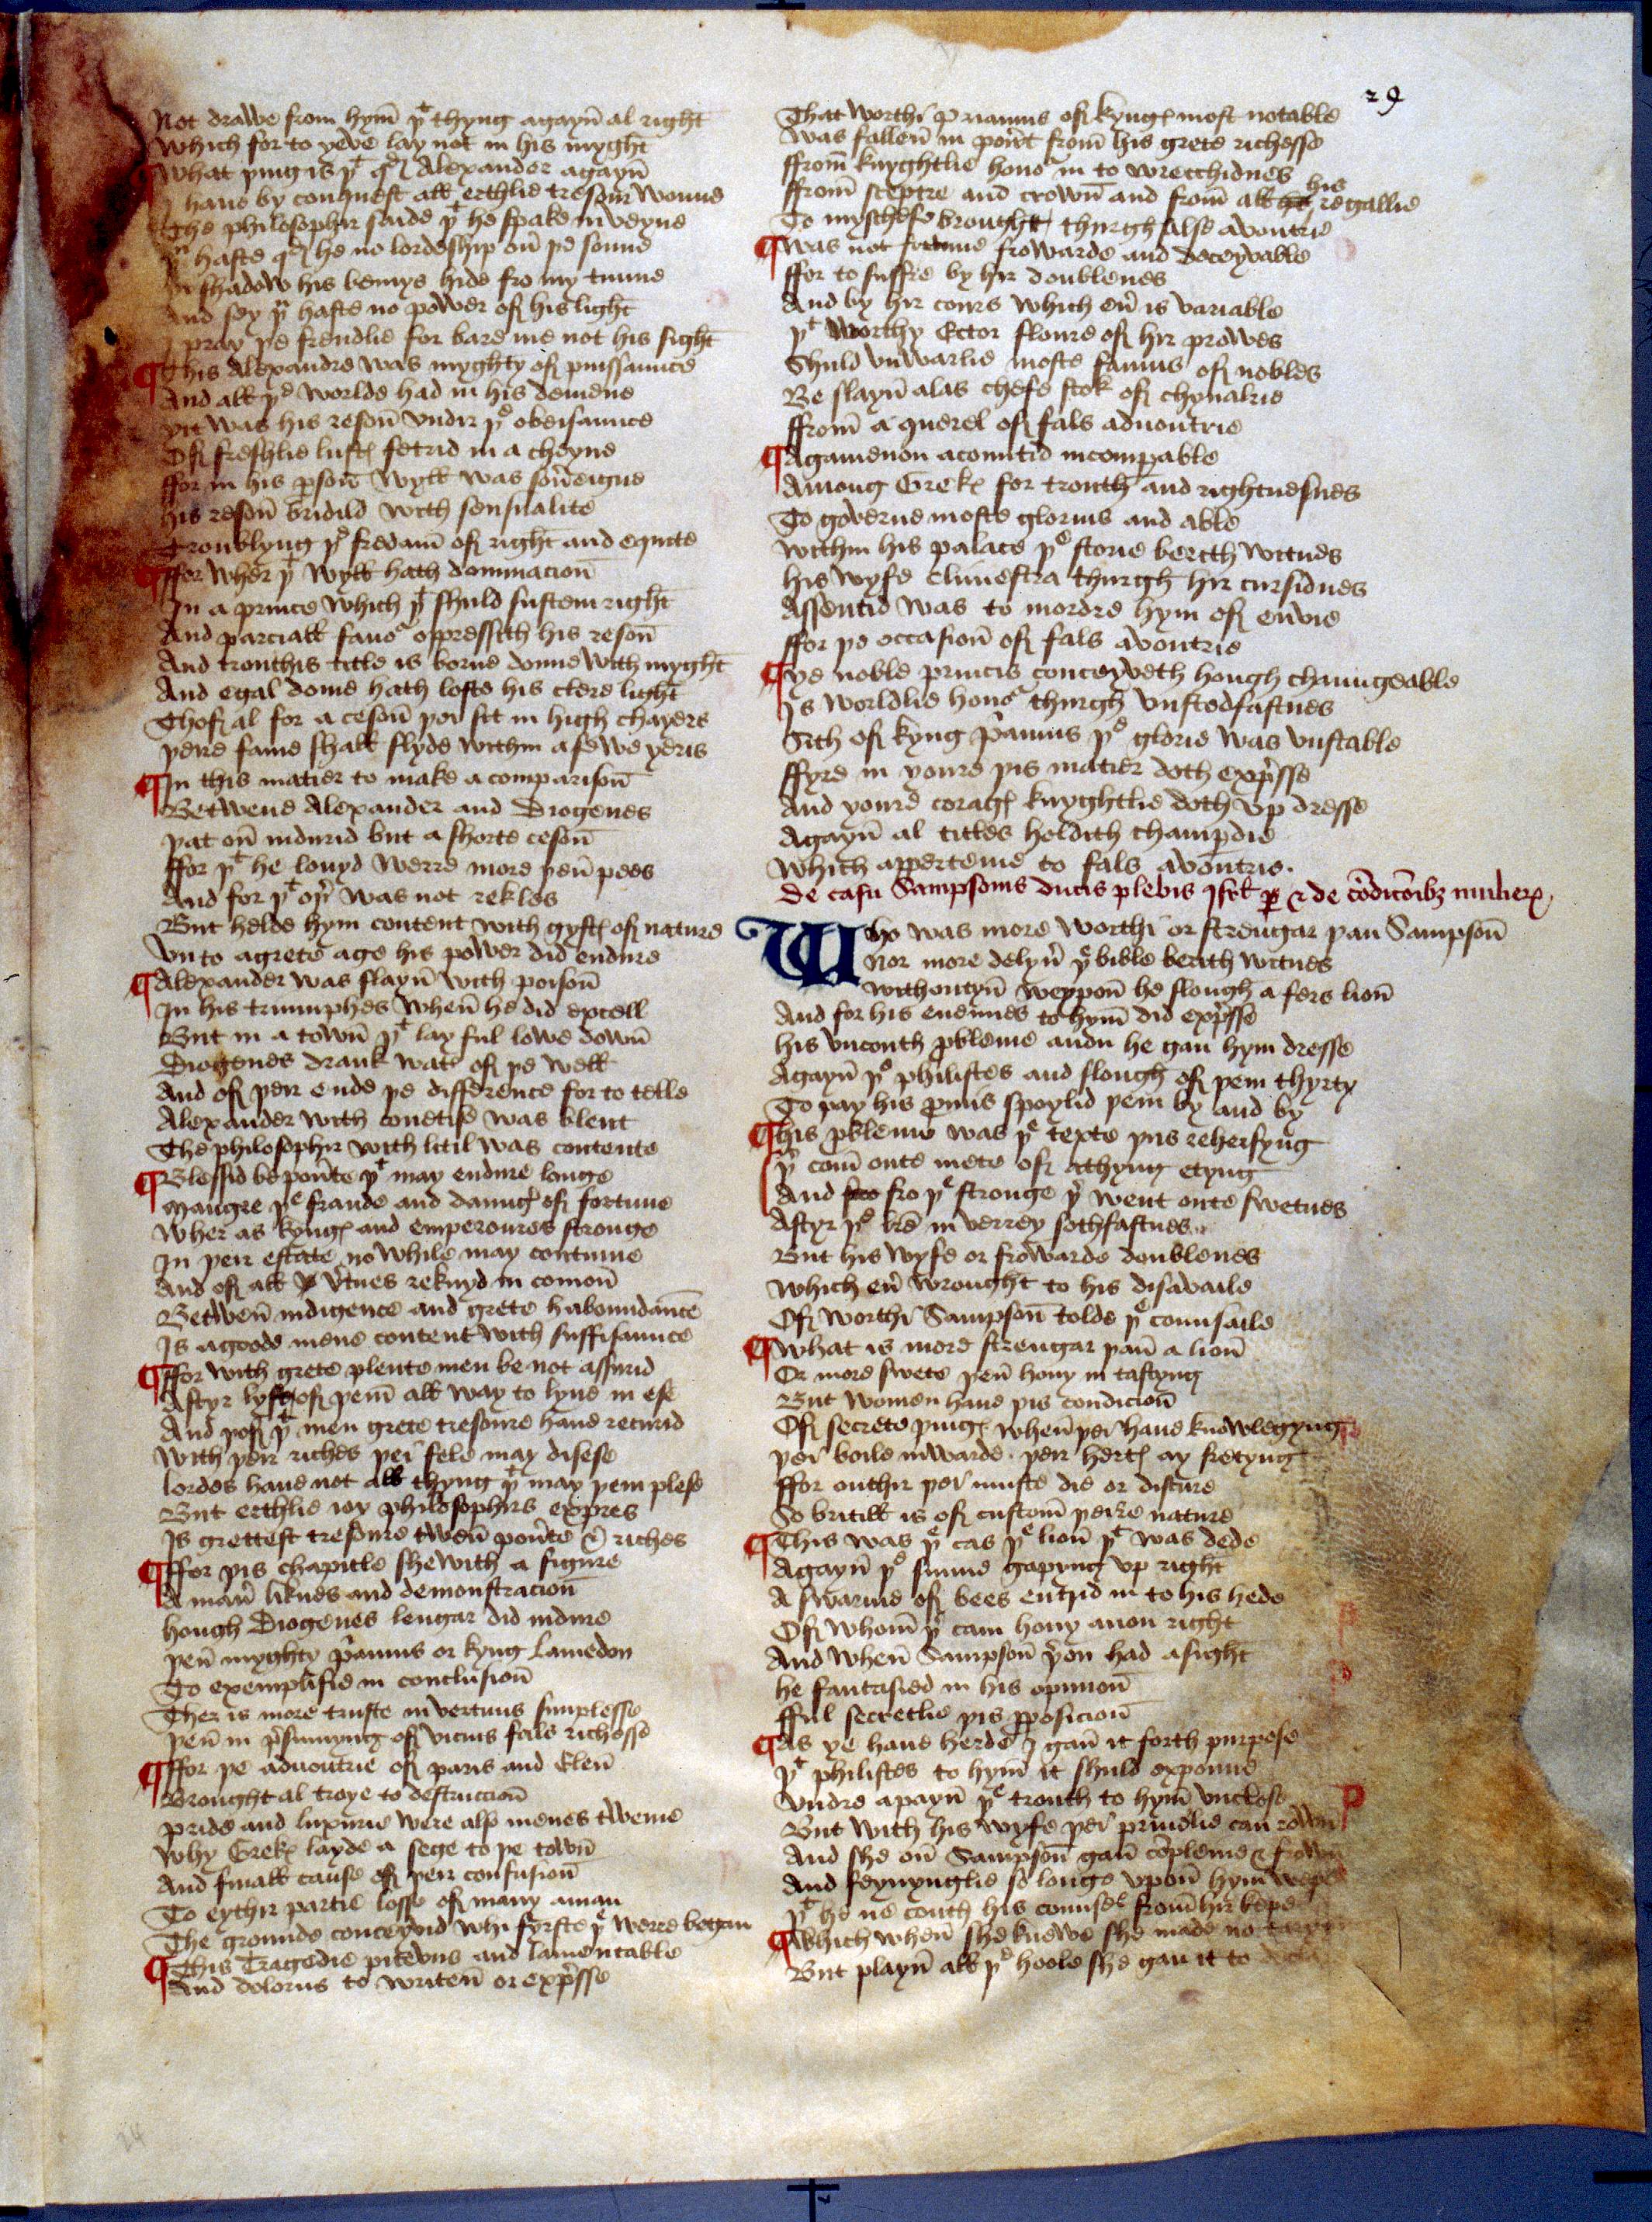 29
Not drawe from hym̄ þt thyng agayn̄ al right
Which for to yeve lay not in his myght
What þing is þt qd Alexander agayn̄
I haue by conquest all erthlie tresour Wonne
The philosophir saide þt he spake in veyne
þu haste qd he no lordeship on̄ þe sonne
In shadow his bemys hide fro my tunne
And sey þu haste no power of his light
I pray þe frendlie for bare me not his sight
¶ This Alexandre was myghty of puissaunce
And all þe worlde had in his demene
yit was his reson̄ vndir þe obeisaunce
Of fresshlie lustꝭ fetrid in a cheyne
ffor in his ꝑson̄ Wyll was sou̾eigne
his reson̄ bridild with sensualite
Troublyng þe fredam̄ of right and equite
¶ ffor Wher þt Wyll hath dominacion̄
In a prince which þt shuld sustein right
And parciall fauor oppressith his reson̄
And trouthis title is borne doune With myght
And egal dome hath loste his clere light
Thof al for a ceson̄ þei sit in high chayers
þeire fame shall slyde within a fewe yeris
¶ In this matier to make a comparison̄
Betwene Alexander and Diogenes
þat on̄ indurid but a shorte ceson̄
ffor þt he louyd Werre more þen̄ pees
And for þt oþr was not rekles
But helde hym content with gyftꝭ of nature
Vn to a grete age his power did endure
¶ Alexander was slayn̄ with poison̄
In his triumphes When̄ he did excell
But in a town̄ þt lay ful lowe down̄
Diogenes drank wat̾ of þe well
And of þeir ende þe difference for to telle
Alexander with couetise was blent
The philosophir with litil was contente
¶ Blessid be pou̾te þt may endure longe
Maugre þe fraude and daungꝭ of fortune
Wher as kyngꝭ and emperoures stronge
In þeir estate no while may contune
And of all v̾tues reknyd in comon̄
Betwen̄ indigence and grete haboundance
Is a goode mene content with suffisaunce
¶ ffor with grete plente men be not assurid
Aftyr lyst of þem̄ all way to lyue in ese
And þof þt men grete tresoure haue recurid
With þeir riches þei fele may disese
lordes haue not all thyng þt may þem plese
But erthlie ioy philosophirs expres
Is grettest tresoure twen̄ pou̾te & riches
¶ ffor þis chapitle shewith a figure
A man̾ liknes and demonstracion̄
hough Diogenes lengar did indure
þen̄ myghty p̾amus or kyng lamedon
To exemplifie in conclusion̄
Ther is more truste in vertuus simplesse
þen̄ in p̾sumyng of vicius fals richesse
¶ ffor þe aduoutrie of paris and Elen̄
Brought al troye to destruccion̄
pride and luxurie were also menes tweine
Why Grekꝭ layde a sege to þe town̄
And finall cause of þeir confusion̄
To eythir partie losse of many a man
The grounde conceyvid whi firste þe werre began
¶ This Tragedie pitevus and lamentable
And dolorus to writen̄ or exp̾sse
That worthi Priamus of kyngꝭ most notable
Was fallen̄ in pou̾t from̄ his grete richesse
ffrom̄ knyghtlie honor in to wrecchidnes
ffrom̄ sceptre and crown̄ and from̄ all his regallie
To myschefe brought thurgh alse avoutrie
¶ Was not fortune frowarde and deceyvable
ffor to suffre by hir doublenes
And by hir cours which eu̾ is variable
þt Worthy Ector floure of hir prowes
Shuld vnwarlie moste famus of nobles
Be slayn̄ alas chefe stok of chyualrie
ffrom̄ a querel of fals aduoutrie
¶ Agamenon acomtid incomꝑable
Among Grekꝭ for trouth and rightuesnes
To governe moste glorius and able
Within his palace þe storie berith witnes
his wyfe Climestra thurgh hir cursidnes
Assentid was to mordre hym of envie
ffor þe occasion̄ of fals avoutrie
¶ ye noble princis conceyveth hough chaungeable
Is worldlie honor thurgh vnstedfastnes
Sith of kyng p̾amus þe glorie was vnstable
ffyre in youre þis matier doth exp̾sse
And youre coragꝭ knyghtlie doth vp dresse
Agayn̄ al titles holdith champdie
Which appertene to fals avoutrie.
De casu Sampsonis ducis plebis Isrl ꝑ & de co̅dico̅ibꝫ mulierꝭ
Who was more worthi or strengar þan Sampson̄
Nor more delyu̾ þe bible berith witnes
Withoutyn̄ weypon̄ he slough a fers lion̄
And for his enemies to hym̄ did exp̾sse
his vnconth ꝓbleme andn he gan hym dresse
Agayn̄ þe philistes and slough of þem thyrty
To pay his ꝓmis spoylid þem by and by
¶ this ꝓbleme was þe texte þus rehersyng
þr com̄ oute mete of a thyng etyng
And fro þe stronge þr went oute swetnes
Aftyr þe lr̄e in verrey sothfastnes
But his wyfe or frowarde doublenes
Which eu̾ wrought to his disavaile
Of worthi Sampson̄ tolde þe counsaile
¶ What is more strengar þan̄ a lion̄
Or more swete þen̄ hony in tastyng
But women haue þis condicion̄
Of secrete þingꝭ when̄ þei haue knowlegyng
þei boile inwarde. þeir hertꝭ ay fretyng
ffor outhir þei muste die or discure
So britill is of custom̄ þeire nature
¶ This was þe cas þe lion̄ þt was dede
Agayn̄ þe sunne gapyng vp right
A swarme of bees entrid in to his hede
Of whom̄ þr cam hony anon right
And when̄ Sampson̄ þr̾on had a sight
he fantasied in his opinion̄
fful secretlie þis ꝓposicion̄
¶ As ye haue herde & gan̄ it forth purpose
þt philistes to hym̄ it shuld expoune
Vndre a payn̄ þe trouth to hym̄ vnclose
But with his wyfe þei priuelie can rown
And she on̄ Sampson̄ gan̄ co̅pleine & frown
And feynynglie so longe vpon̄ hym wepe
þt he ne couth his counsel from̄ hir kepe
¶ Which when̄ she knewe she made no
But playn̄ all þe hoole she gan it to
24